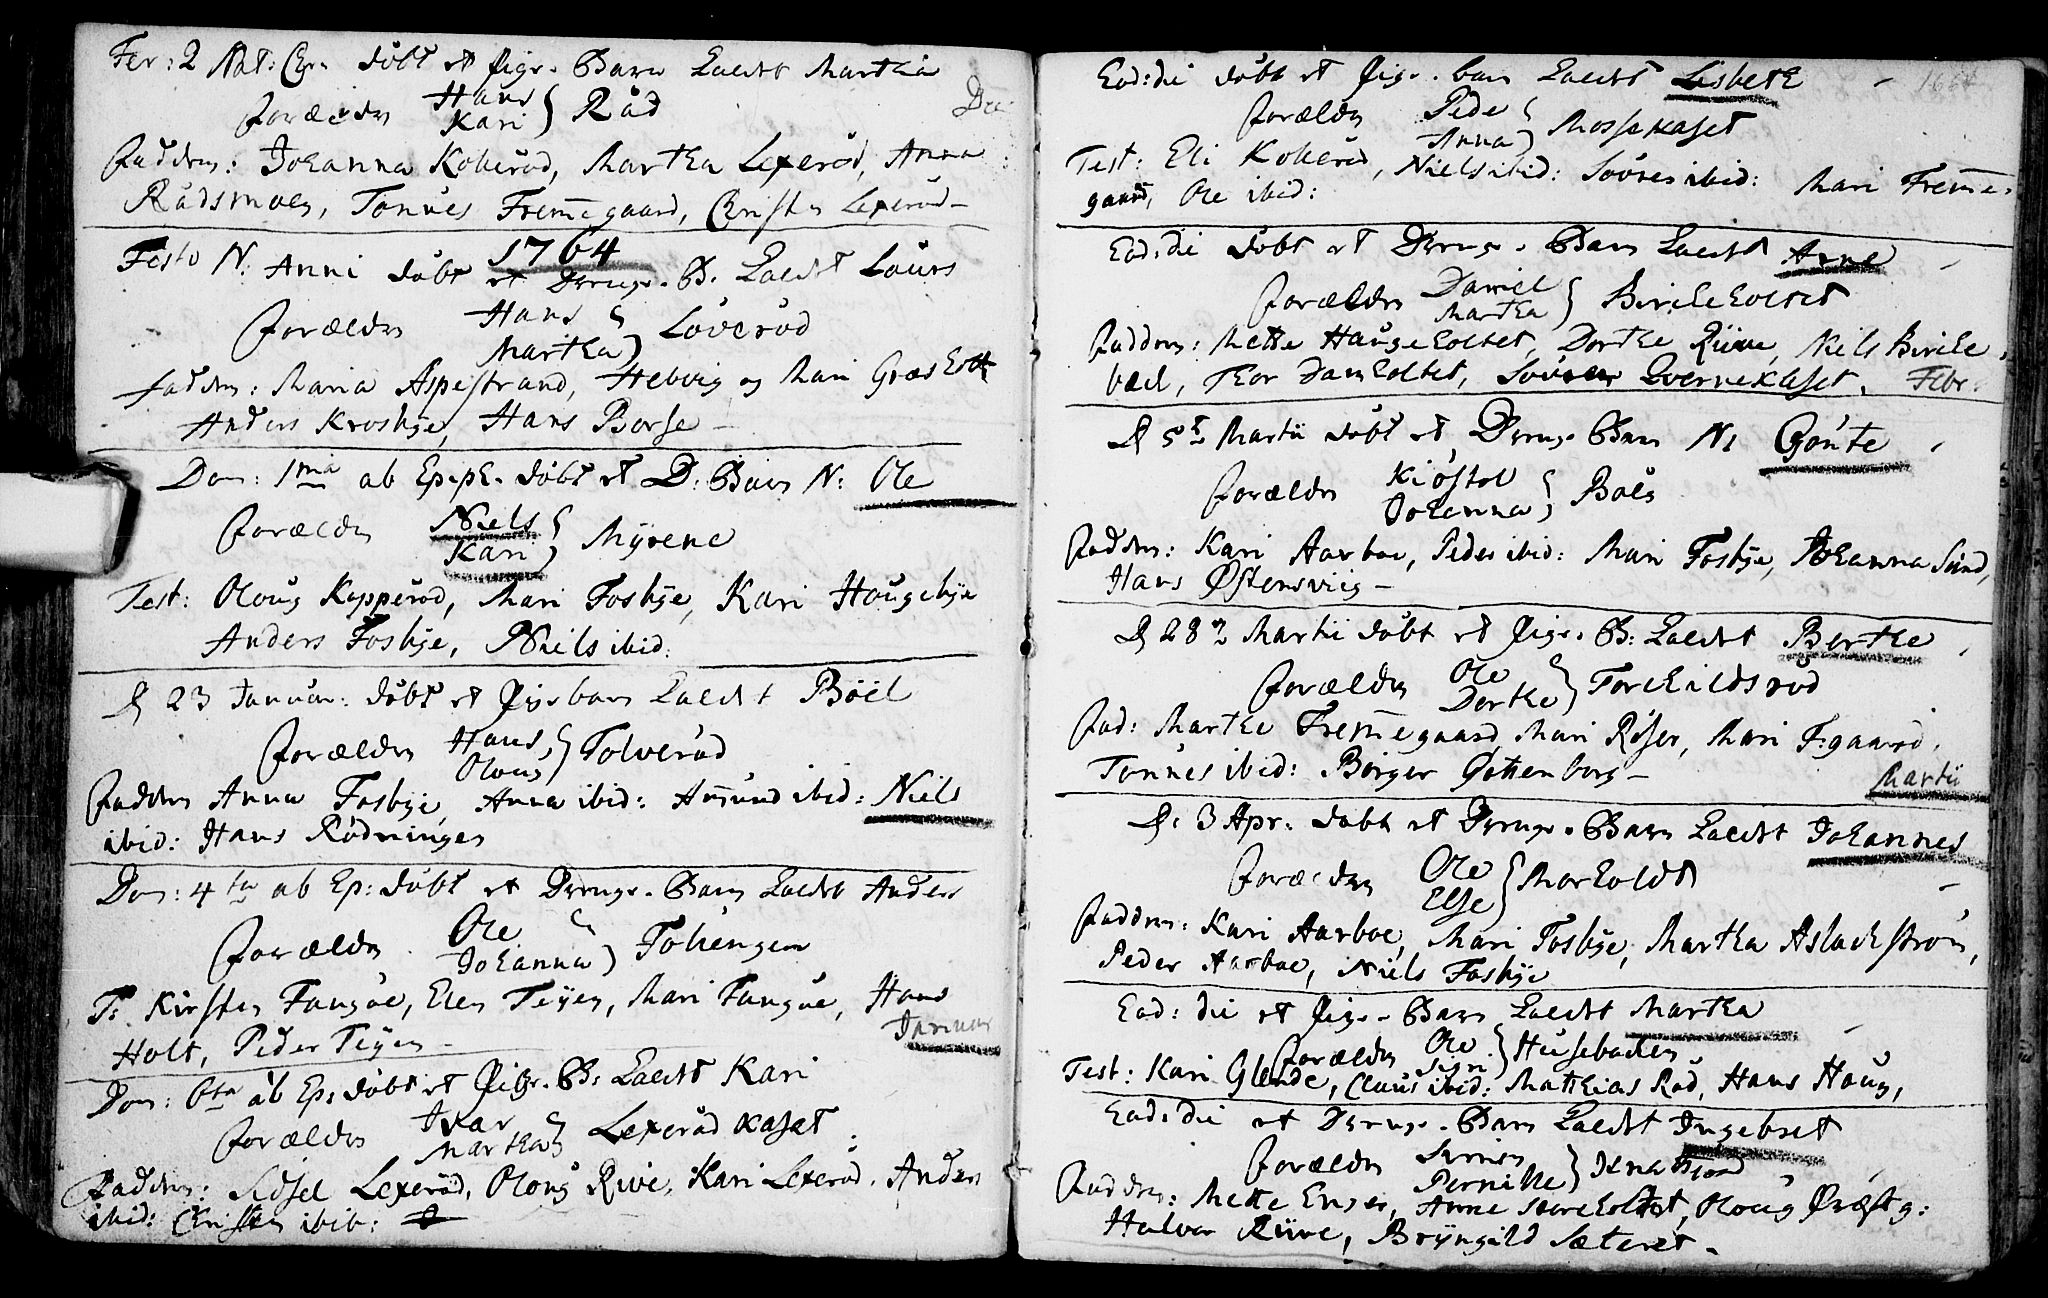 Fer: 2 Nat: Chr. døbt et Pige-Barn kaldet Martha
Forældre Hans Kari } Råd
Faddere: Johanna Kollerød, Martha Lexerød, Anna
Rådsmoen, Tønnes Fremegaard, Christen Lexerød
1764
Festo N: Anni døbt et Drenge-B: kaldet Laurs
Forældre Hans Martha } Løverød
Faddere: Maria Aspestrand, Hedvig og Mari Græsholt
Anders Krosbye, Hans Borse
Dom: 1ma ab Epiph. døbt et D: Barn N: Ole
Forældre Niels Kari } Myrene
Test: Oloug Kopperød, Mari Fosbye, Kari Hougebye
Anders Fosbye, Niels ibid:
D 23 Januar: døbt et Pigebarn kaldet Böel
Forældre Hans Oloug } Tolverød
Faddere Anna Fosbye, Anna ibid: Amund ibid: Niels
ibid: Hans Rødningen
Dom: 4ta ab Ep: døbt et Drenge-Barn kaldet Anders
Forældre Ole Johanna } Tollengen
T: Kirsten Tangöe, Elen Teyen, Mari Tangöe, Hans
Holt, Peder Teyen
Januar
Dom: 6ta ab Ep: døbt et Pige-B: kaldet Kari
Forældre Ivar Martha } Lexerød kaset
Faddere: Sidsel Lexerød, Oloug Rive, Kari Lexerød, Anders
ibid: Christen ibid:
Ead: die døbt et Pige-barn kaldet Lisbeth
Forældre Peder Anna } Mossekaset
Test: Eli Kollerød, Niels ibid: Søvren ibid: Mari Freme-
gaard, Ole ibid:
Ead: die døbt et Drenge-Barn kaldet Arne
Forældre Daniel Martha } Birkeholtet
Faddere: Mette Haugeholtet, Dorthe Riive, Niels Birke-
bæk, Thor Damholtet, Søvren Qvernekaset.
Febr:
D 5te Martii døbt et Drenge-Barn N: Gønte
Forældre Kiøstol Johanna } Böen
Faddere: Kari Aarboe, Peder ibid: Mari Fosbye, Johanna Sund,
Hans Østensviig
D 28de Martii døbt et Pige-B: kaldet Berthe
Forældre Ole Dorthe } Torchildsrød
Fad: Marthe Fremegaard, Mari Röser, Mari F:gaard,
Tønnes ibid: Børger Gottenborg
Martii
D: 3 Apr: døbt et Drenge-Barn kaldet Johannes
Forældre Ole Else } Morholdt
Faddere: Kari Aarboe, Mari Fosbye, Martha Aslachstrøm,
Peder Aarboe, Niels Fosbye
Ead: die et Pige-Barn kaldet Martha
Forældre Ole Sigri } Husebacken
Test: Kari Glende, Claus ibid: Matthias Rød, Hans Houg,
Ead: die et Drenge-Barn kaldet Ingebret
Forældre Pernille
Faddere: Mette Enger, Anne Storeholtet, Oloug
Halvor Riive, Bryngild Sæteret